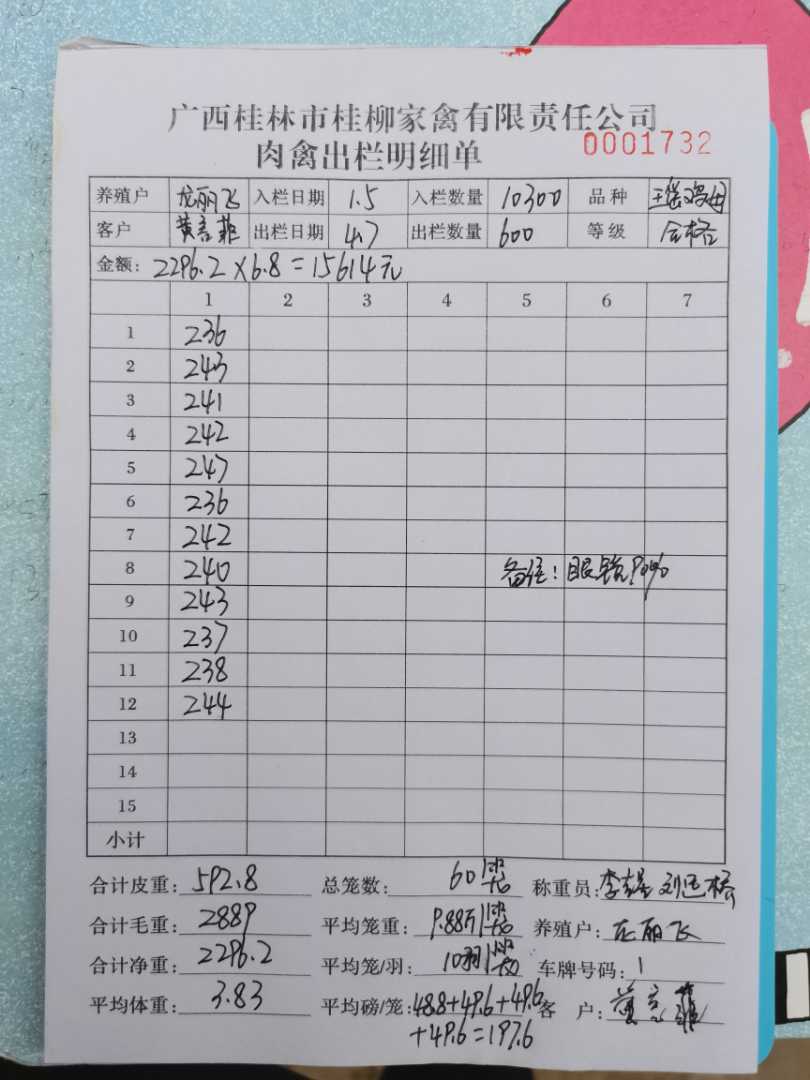 广西桂林市桂柳家禽有限责任公司
肉禽出栏明细单 0001732
养殖户 龙丽飞 入栏日期 1.5 入栏数量 10300 品种 瑶鸡母
客户 黄言菲 出栏日期 4.7 出栏数量 600 等级 合格
金额: 2296.2×6.8=15614元
1 2 3 4 5 6 7
1 236
2 243
3 241
4 242
5 247
6 236
7 242
8 240 备注:眼镜90%
9 243
10 237
11 238
12 244
13
14
15
小计
合计皮重: 592.8 总笼数: 60 称重员:
合计毛重: 2889 平均笼重: 9.88斤 养殖户: 龙丽飞
合计净重: 2296.2 平均笼/羽: 10羽 车牌号码: 1
平均体重: 3.83 平均磅/笼: 48.8+49.6+49.6 客户: 黄言菲
+49.6=197.6